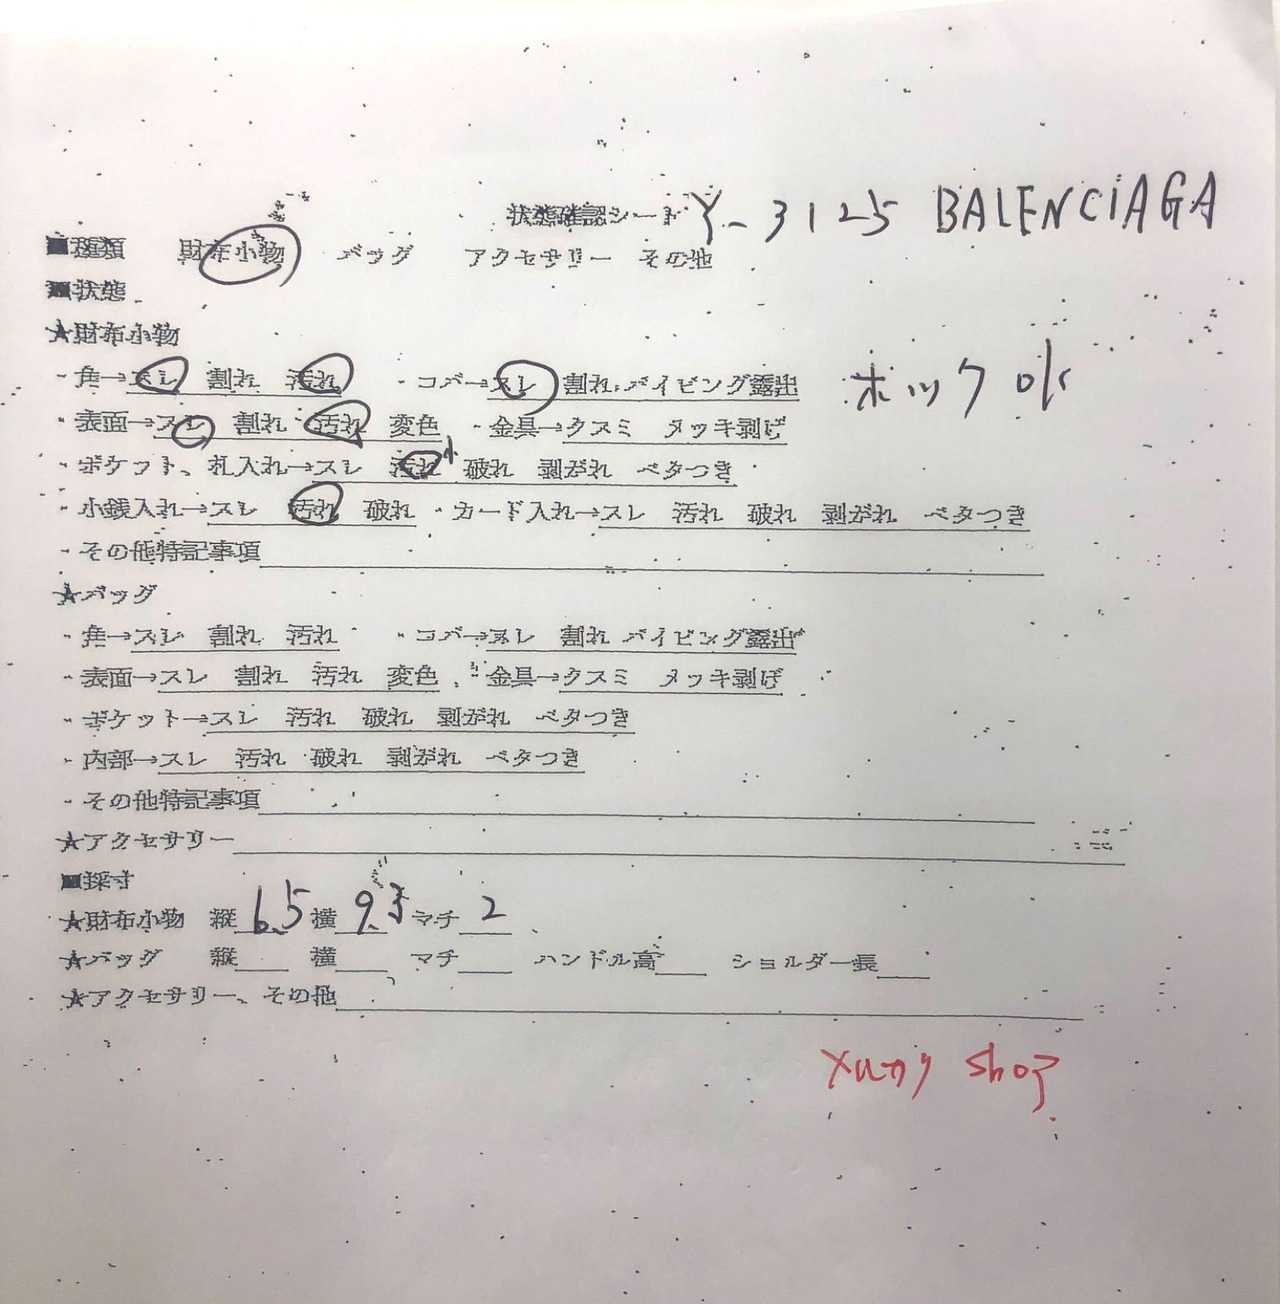 状態確認シート Y-3125 BALENCIAGA
■種類 財布小物 バッグ アクセサリー その他
■状態
★財布小物
・角→スレ 割れ 汚れ ・コバ→スレ 割れ パイピング露出 ホック ok
・表面→スレ 割れ 汚れ 変色 ・金具→クスミ メッキ剥げ
・ポケット、札入れ→スレ 汚れ小 破れ 剥がれ ベタつき
・小銭入れ→スレ 汚れ 破れ ・カード入れ→スレ 汚れ 破れ 剥がれ ベタつき
・その他特記事項
★バッグ
・角→スレ 割れ 汚れ ・コバ→スレ 割れ パイピング露出
・表面→スレ 割れ 汚れ 変色 ・金具→クスミ メッキ剥げ
・ポケット→スレ 汚れ 破れ 剥がれ ベタつき
・内部→スレ 汚れ 破れ 剥がれ ベタつき
・その他特記事項
★アクセサリー
■採寸
★財布小物 縦 6.5 横 9.5 マチ 2
★バッグ 縦 横 マチ ハンドル高 ショルダー長
★アクセサリー、その他
shop